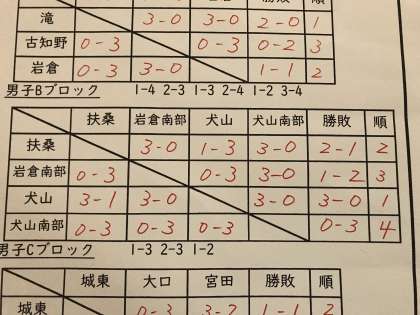 滝 3-0 3-0 2-0 1
古知野 0-3 0-3 0-2 3
岩倉 0-3 3-0 1-1 2
男子Bブロック 1-4 2-3 1-3 2-4 1-2 3-4
扶桑 岩倉南部 犬山 犬山南部 勝敗 順
扶桑 3-0 1-3 3-0 2-1 2
岩倉南部 0-3 0-3 3-0 1-2 3
犬山 3-1 3-0 3-0 3-0 1
犬山南部 0-3 0-3 0-3 0-3 4
男子Cブロック 1-3 2-3 1-2
城東 大口 宮田 勝敗 順
城東 0-3 3-2 1-1 2